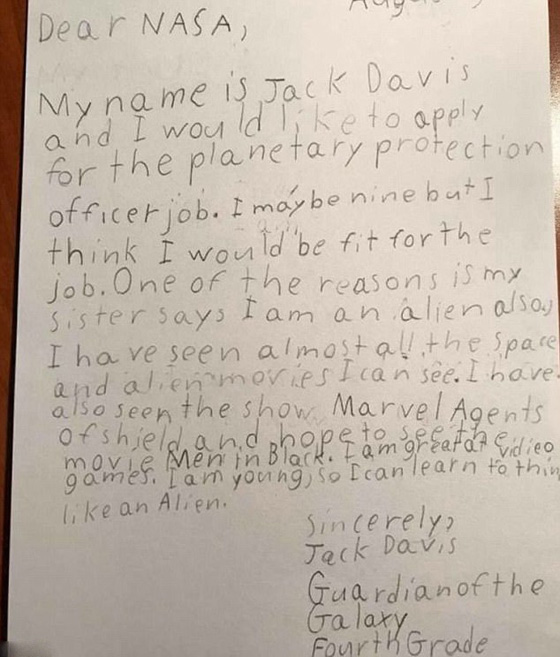 Dear NASA,
My name is Jack Davis
and I would like to apply
for the planetary protection
officer job. I may be nine but I
think I would be fit for the
job. One of the reasons is my
sister says I am an alien also,
I have seen almost all the space
and alien movies I can see. I have
also seen the show Marvel Agents
of shield and hope to see the
movie Men in Black. I am great at vidieo
games. I am young, so I can learn to thin
like an Alien.
Sincerely,
Jack Davis
Guardian of the
Galaxy
Fourth Grade